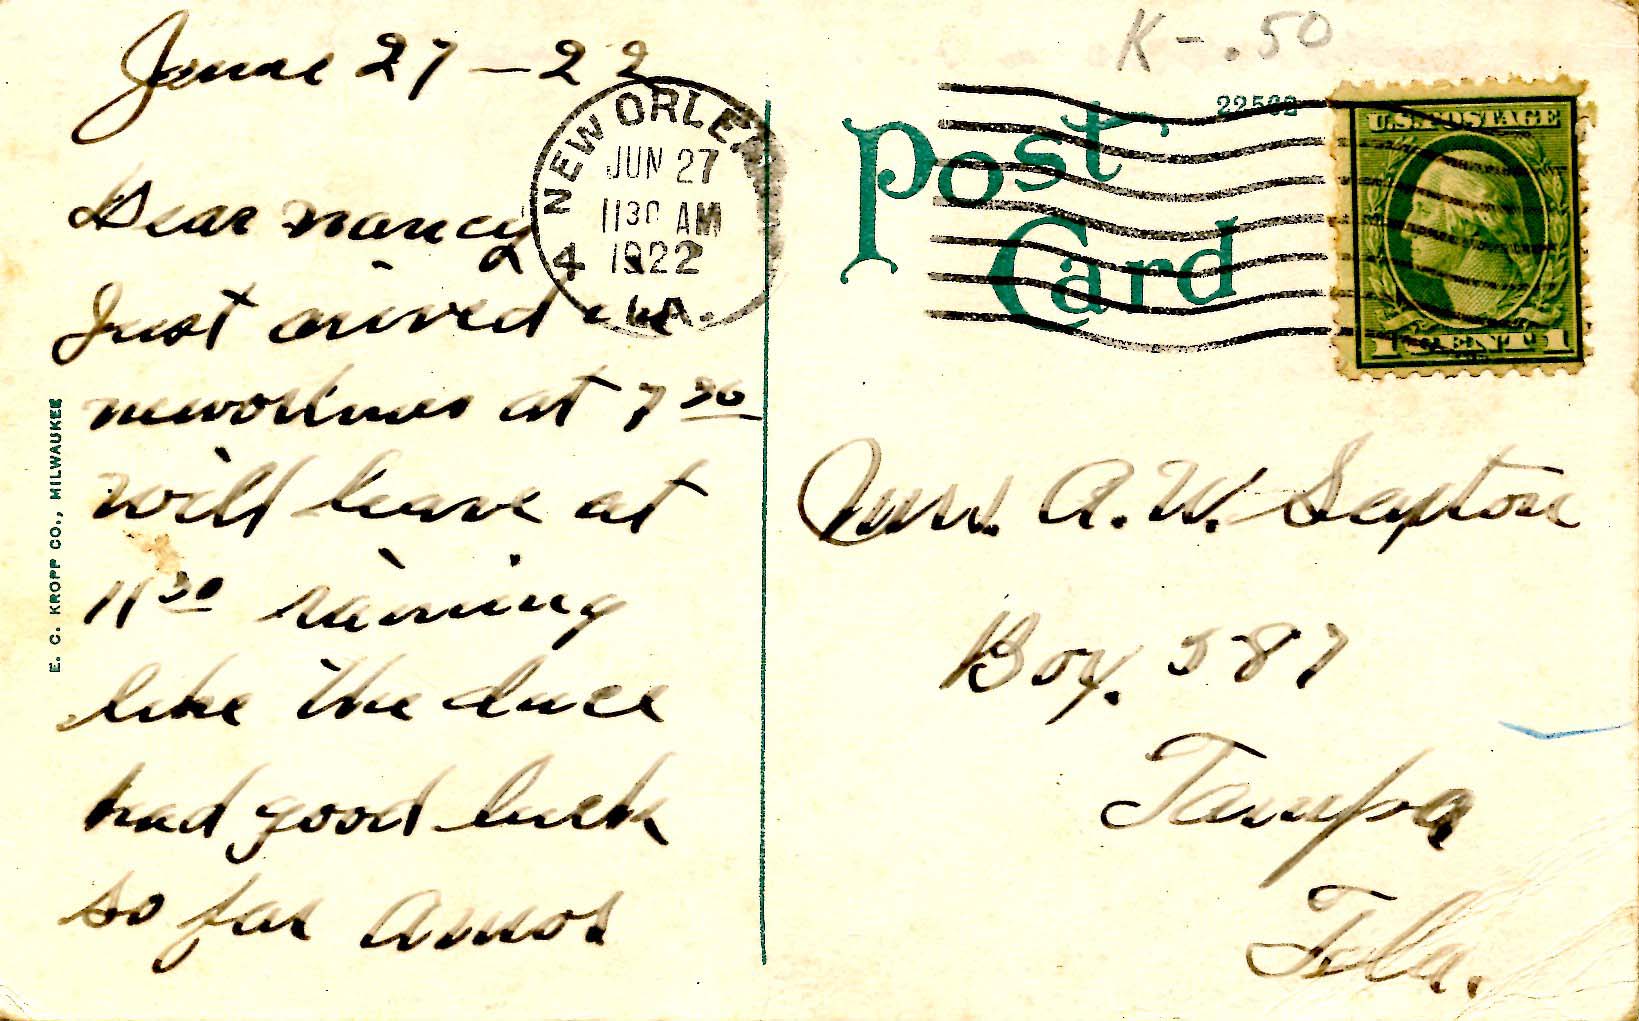 June 27 - 22
Dear Nancy
Just arived in
neworleans at 7 30
will leave at
11 30 raining
like the duce
had good luck
so far Amos
NEW ORLEANS
JUN 27
11 30 AM
1922
4
LA.
E. C. KROPP CO., MILWAUKEE
K - .50
Post Card
U.S. POSTAGE
1 CENT 1
Mrs. A. W. Sexton
Box. 587
Tampa
Fla.